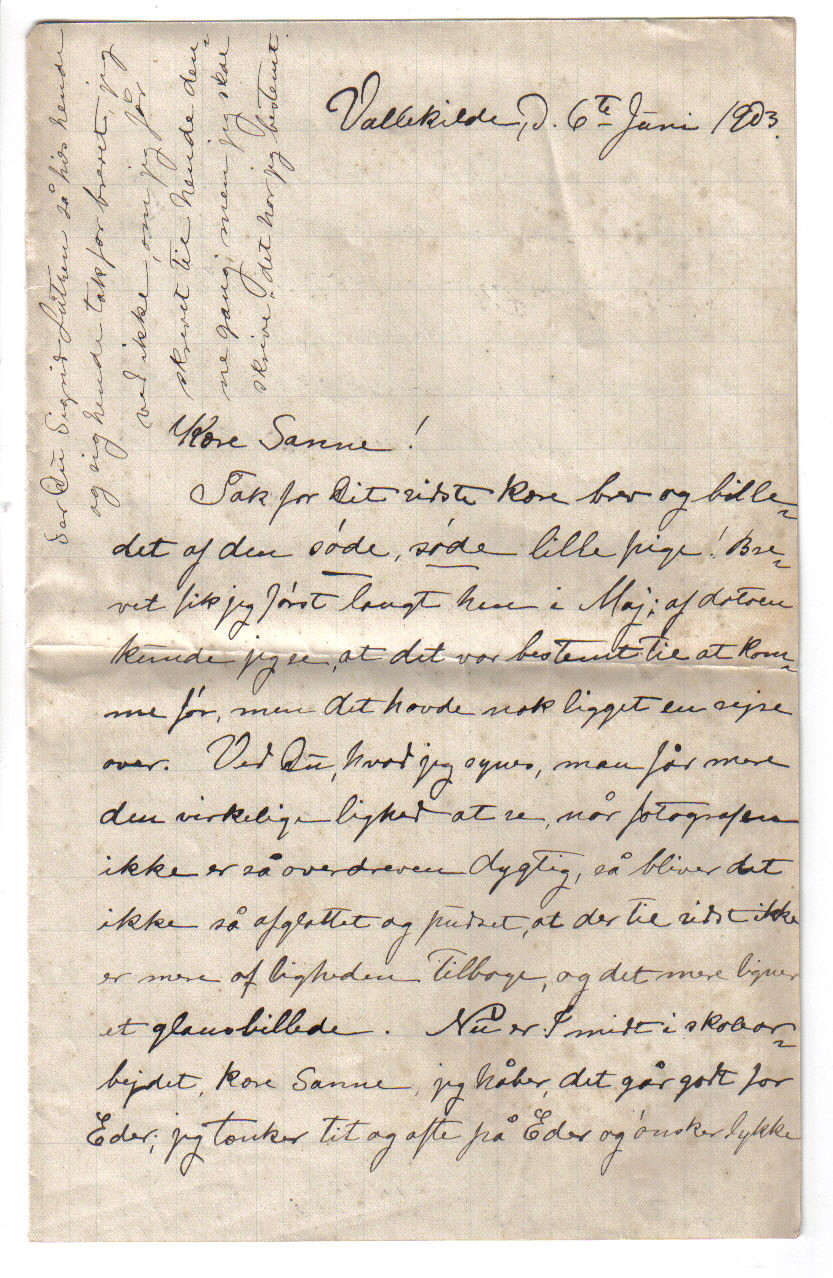 Vallekilde, d. 6te Juni 1903.
Kære Sanne!
Tak for Dit sidste kære brev og bille=
det af den søde, søde lille pige! Bre=
vet fik jeg først langt hen i Maj; af datoen
kunde jeg se, at det var bestemt til at kom=
me før, men det havde nok ligget en rejse
over. Ved Du, hvad jeg synes, man får mere
den virkelige lighed at se, når fotografen
ikke er så overdreven dygtig, så bliver det
ikke så afglattet og pudset, at der til sidst ikke
er mere af ligheden tilbage, og det mere ligner
et glansbillede. Nu er I midt i skolear=
bejdet, kære Sanne, jeg håber, det går godt for
Eder; jeg tænker tit og ofte på Eder og ønsker lykke
Ser Du Sigrid så hils hende
og sig hende tak for brevet, jeg
ved ikke, om jeg får
skrevet til hende den=
ne gang, men jeg skal
skrive, det har jeg bestemt.